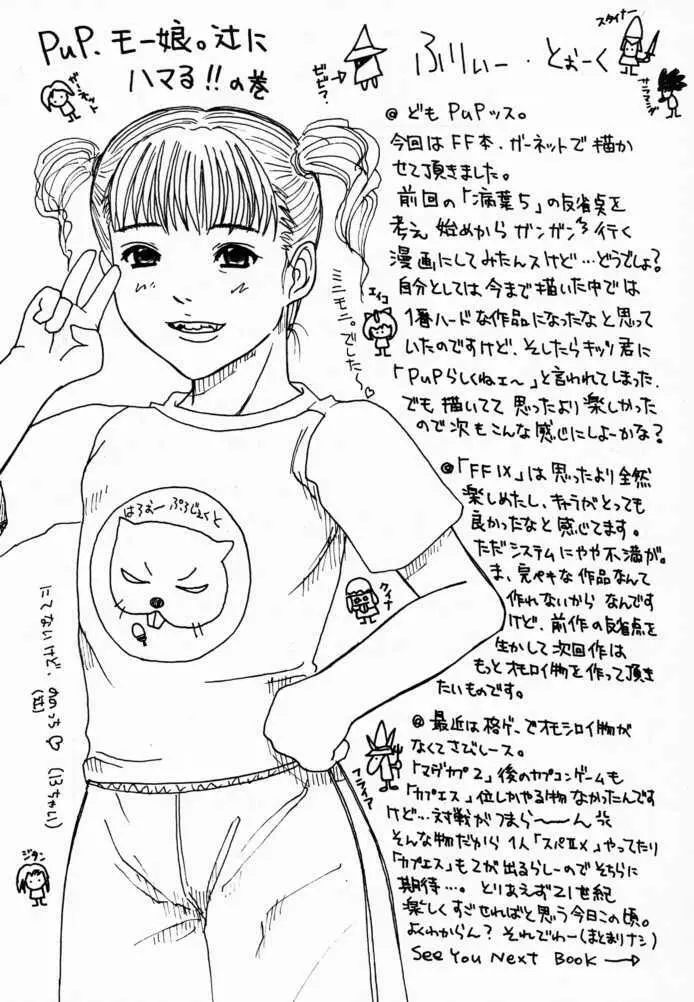 PuP. モー娘。辻に
ハマる!! の巻
ビビ?
ふりぃー・とぉーく
スタイナー
サラマンダ
@ どもPuPッス。
今回はFF本、ガーネットで描か
せて頂きました。
前回の「病葉5」の反省点を
考え始めからガンガン行く
漫画にしてみたんスけど…どうでしょ?
自分としては今まで描いた中では
1番ハードな作品になったなと思って
いたのですけど、そしたらキッツ君に
「PuPらしくねェ〜」と言われてしまった、
でも描いてて思ったより楽しかった
ので次もこんな感じにしよーかな?
エイコ
ミニモニ。でした〜♡
@「FFIX」は思ったより全然
楽しめたし、キャラがとっても
良かったなと感じてます。
ただシステムにやや不満が。
ま、完ペキな作品なんて
作れないからなんです
けど、前作の反省点を
生かして次回作は
もっとオモロイ物を作って頂き
たいものです。
クイナ
はろおーぷろじぇくと
にてないけど、ののっち♡(13ちゃい)
(辻)
@ 最近は格ゲーでオモシロイ物が
なくてさびしース。
「マヴカプ2」後のカプコンゲームも
「カプエス」位しかやる物なかったんです
けど…対戦がつまら〜〜ん
そんな物だから1人「スパIIX」やってたり
「カプエス」も2が出るらしーのでそちらに
期待…。とりあえず21世紀
楽しくすごせればと思う今日この頃。
よくわからん?それでわー(まとまりナシ)
See You Next Book →
フライア
ジタン